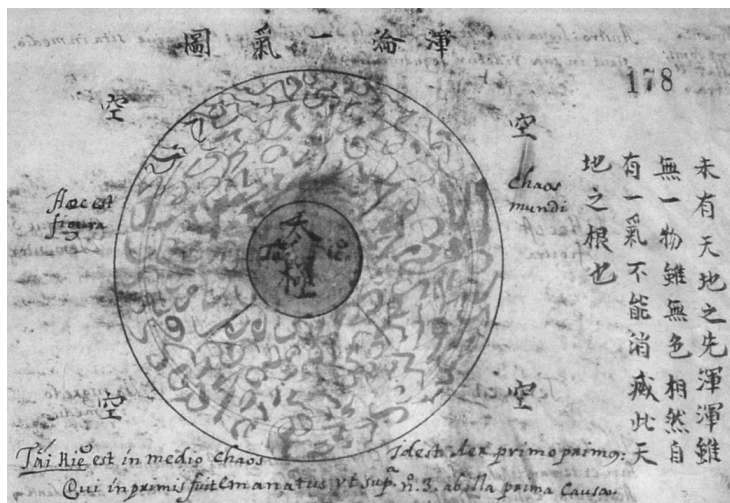 圖氣一淪渾
178
空
空
Hæc est
figura
Chaos
mundi
太極
未有天地之先渾渾雖
無一物雖無色相然自
有一氣不能消滅此天
地之根也
空
空
Tai Kiĕ est in medio Chaos
Idest Aer primo primo:
Qui in primis fuit emanatus vt sup.ᵃ n.º 3. ab illa prima Causa.